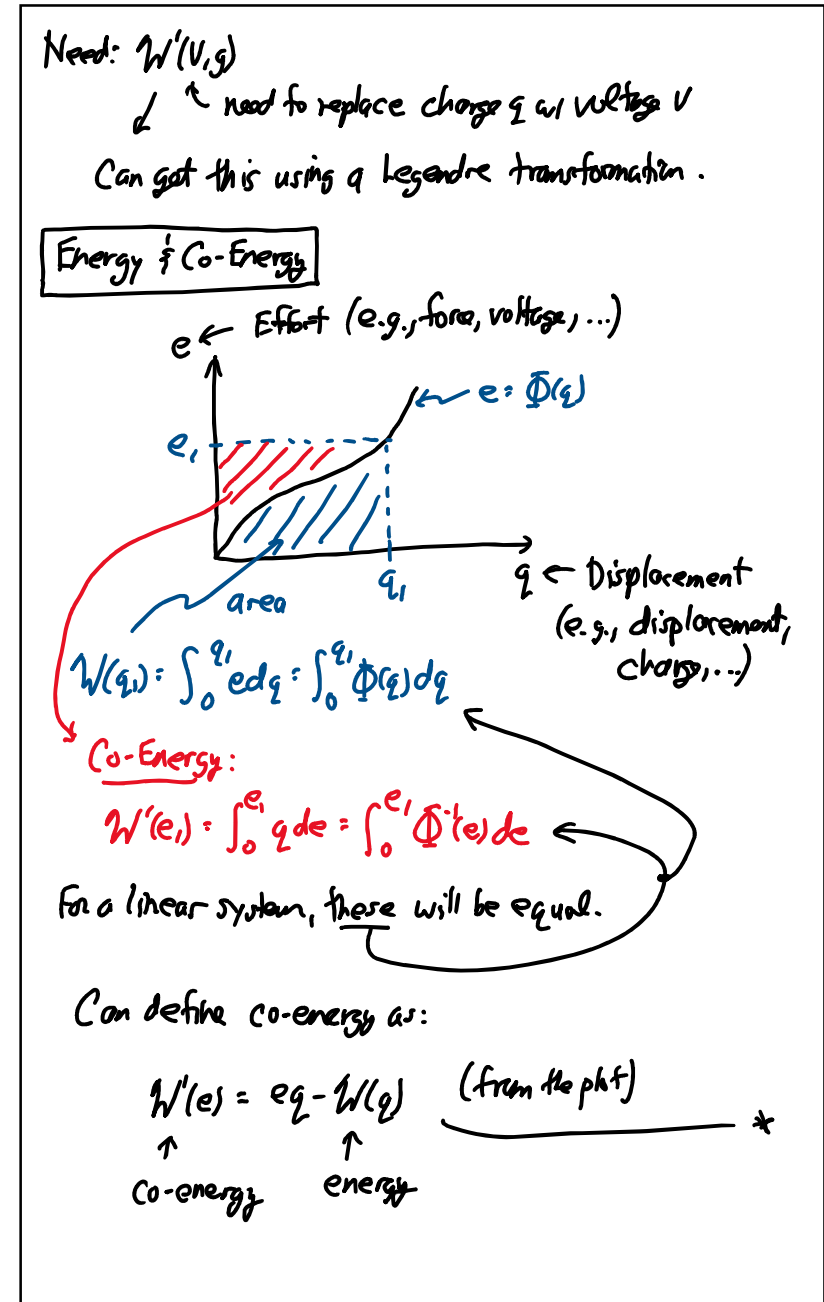 Need: W'(V,g)
need to replace charge q w/ voltage V
Can get this using a Legendre transformation.
Energy & Co-Energy
e ← Effort (e.g., force, voltage, ...)
e = Φ(q)
e₁
q₁
area
q ← Displacement
(e.g., displacement,
charge, ...)
W(q₁) = ∫₀^q₁ e dq = ∫₀^q₁ Φ(q) dq
Co-Energy:
W'(e₁) = ∫₀^e₁ q de = ∫₀^e₁ Φ⁻¹(e) de
For a linear system, these will be equal.
Can define co-energy as:
W'(e) = eq - W(q) (from the plot) *
co-energy energy